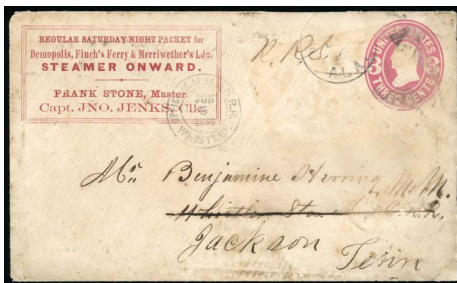 REGULAR SATURDAY NIGHT PACKET for
Demopolis, Finch's Ferry & Merriwether's Ldg.
STEAMER ONWARD.
FRANK STONE, Master.
Capt. JNO. JENKS, Clk.
ALA
THREE CENTS
JUN
WHISTLER
Mr Benjamine Herring M.M.
Whistler Sta
Jackson
Tenn